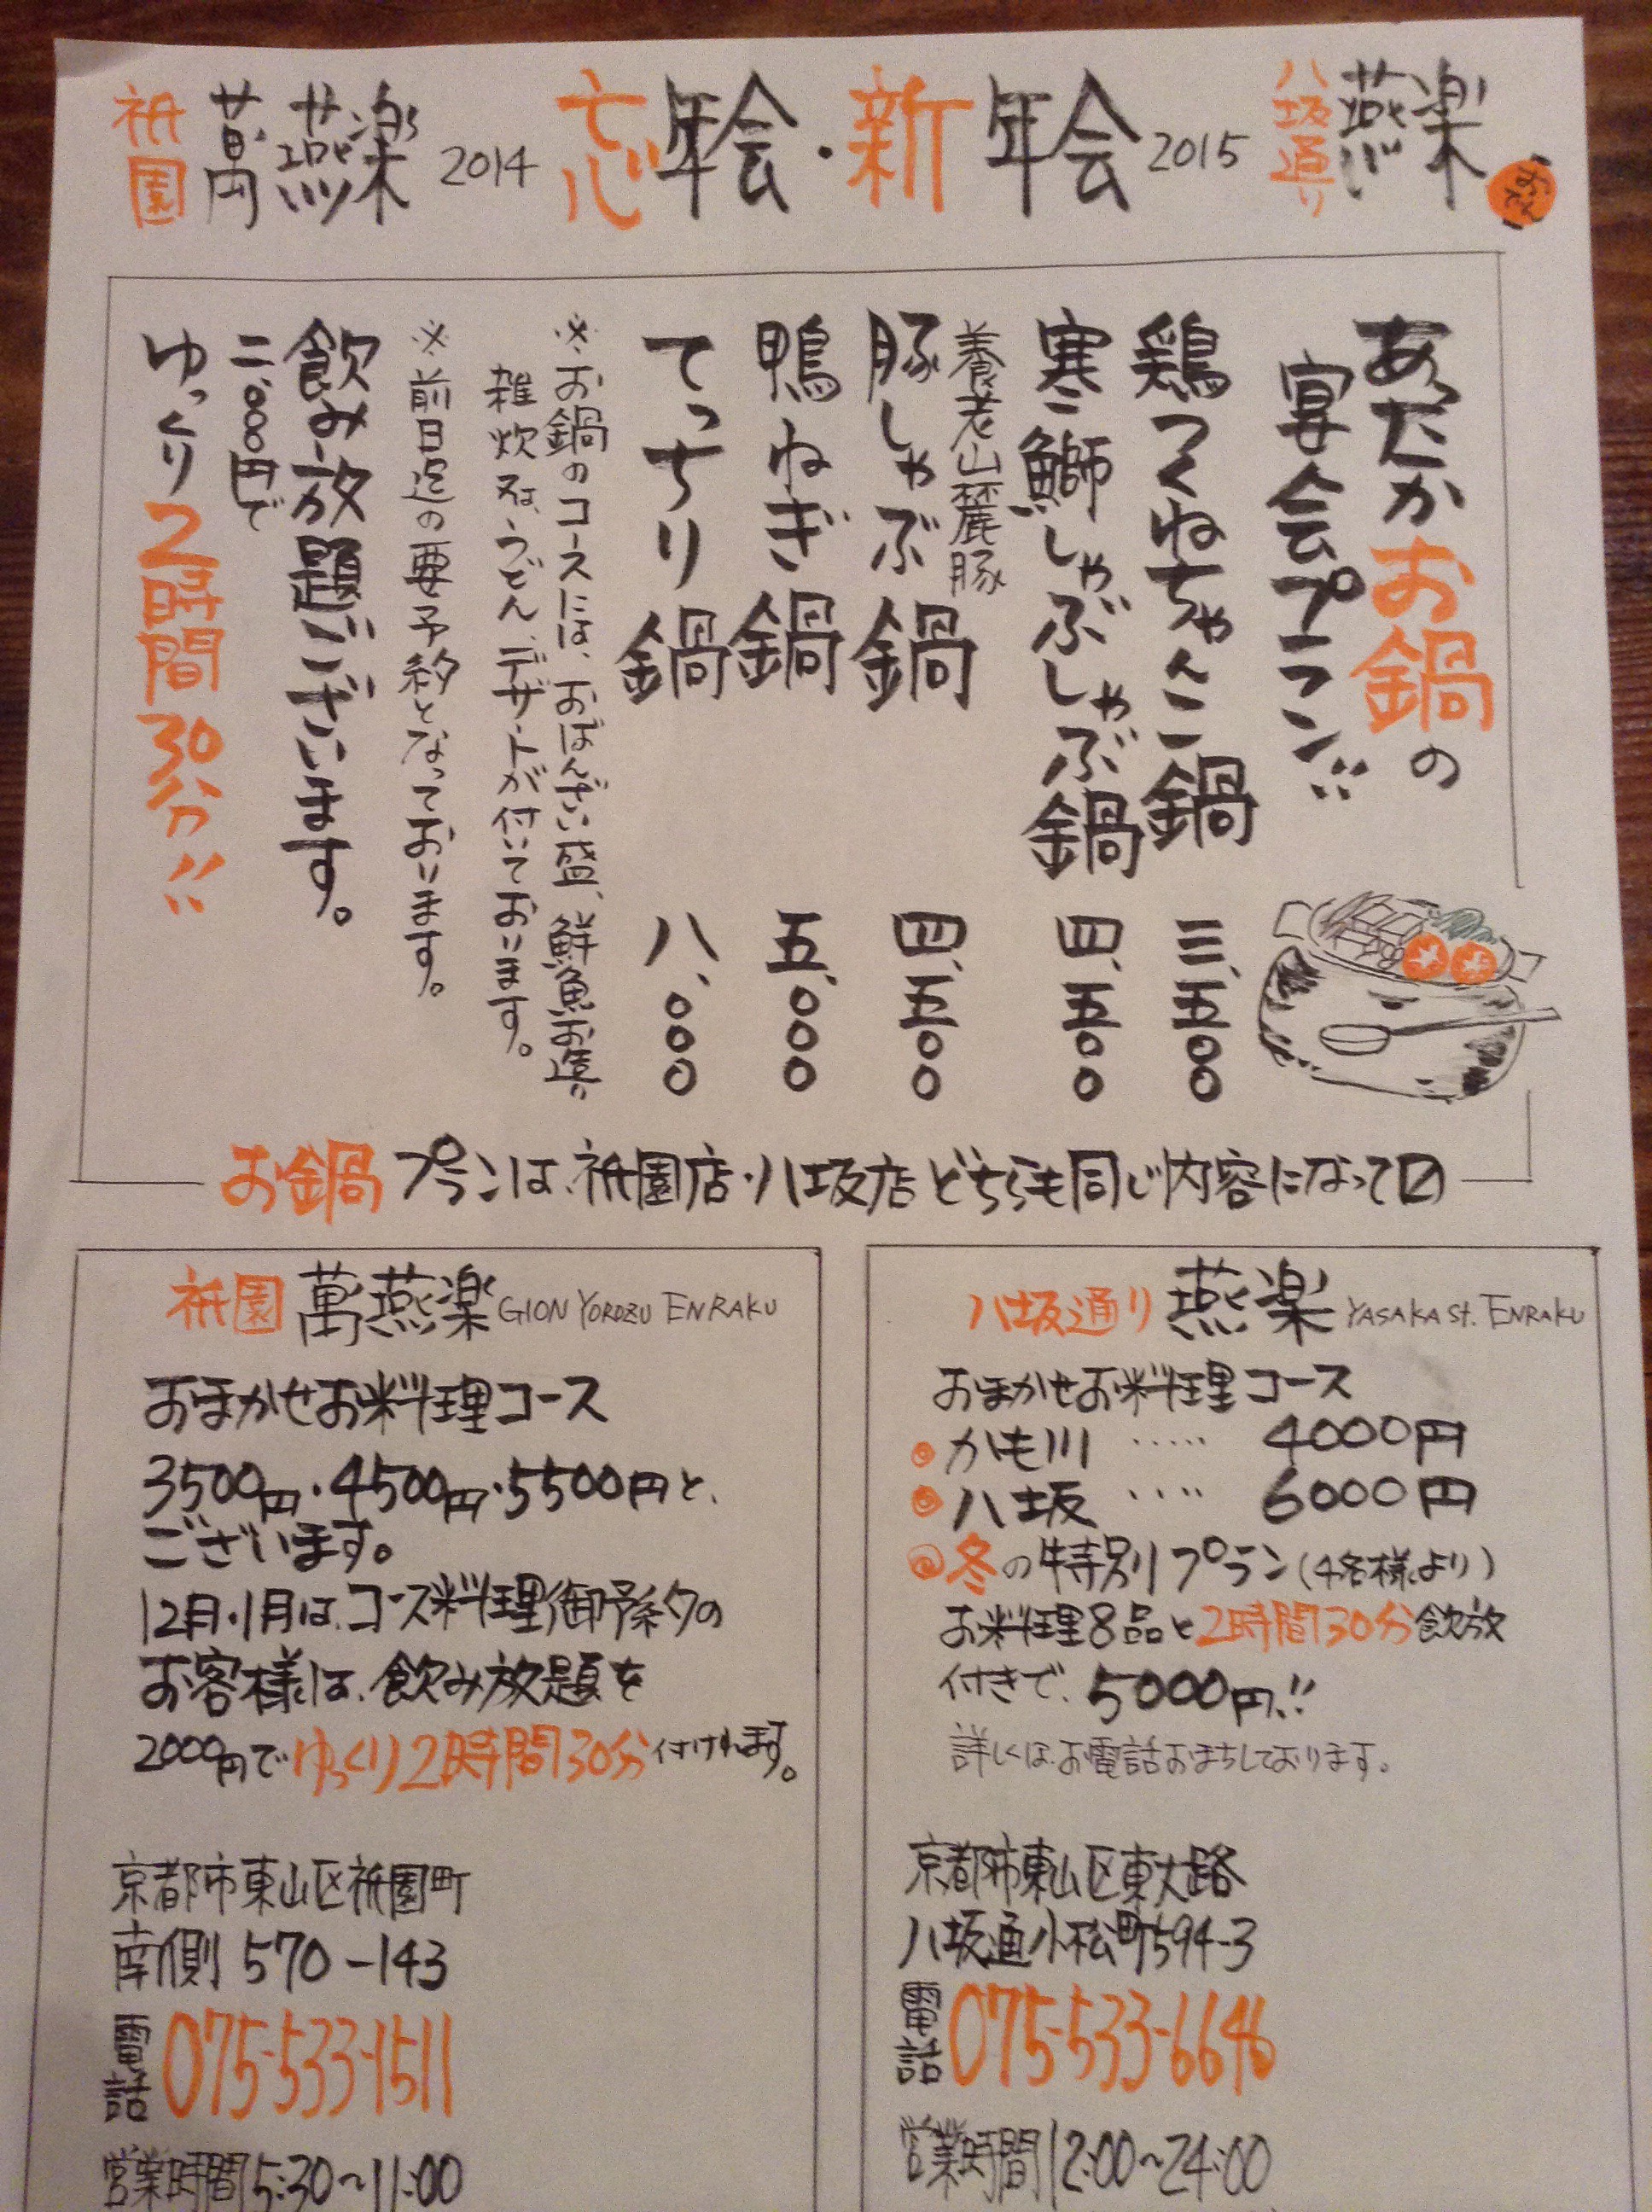 祇園 萬燕楽 2014 忘年会・新年会 2015 八坂通り 燕楽
あったかお鍋の
宴会プラン!!
鶏つくねちゃんこ鍋 三、五〇〇
寒鰤しゃぶしゃぶ鍋 四、五〇〇
養老山麓豚
豚しゃぶ鍋 四、五〇〇
鴨ねぎ鍋 五、〇〇〇
てっちり鍋 八、〇〇〇
※お鍋のコースには、おばんざい盛、鮮魚お造り
雑炊又は、うどん、デザートが付いております。
※前日迄の要予約となっております。
飲み放題ございます。
二、〇〇〇円で
ゆっくり2時間30分!!
お鍋プランは、祇園店・八坂店どちらも同じ内容になって〼
祇園 萬燕楽 GION YOROZU ENRAKU
おまかせお料理コース
3500円・4500円・5500円と、
ございます。
12月・1月は、コース料理御予約の
お客様は、飲み放題を
2000円でゆっくり2時間30分付けれます。
京都市東山区祇園町
南側570-143
電話 075-533-1511
営業時間5:30~11:00
八坂通り 燕楽 YASAKA St. ENRAKU
おまかせお料理コース
◎かも川 ····· 4000円
◎八坂 ···· 6000円
◎冬の特別プラン(4名様より)
お料理8品と2時間30分飲放
付きで、5000円!!
詳しくは、お電話おまちしております。
京都市東山区東大路
八坂通小松町594-3
電話 075-533-6646
営業時間12:00~24:00